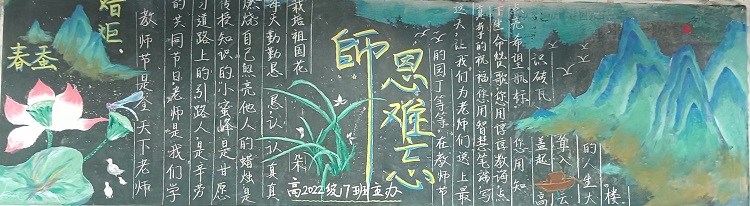 春蚕
蜡炬
教师节是全天下老师
的共同节日老师是我们学
习道路上的引路人是辛劳
传授知识的小蜜蜂是甘愿
燃烧自己照亮他人的蜡烛是
每天勤勤恳恳、认认真真
栽培祖国花朵
師恩难忘
高2022级17班主办
的园丁等等,在教师节
这天,让我们为老师们送上最
真挚的祝福您用智慧笔端写
下生命赞歌您用谆谆教诲点
亮希望航标 您用知
识破瓦 盖起高
入云
的人生大
楼